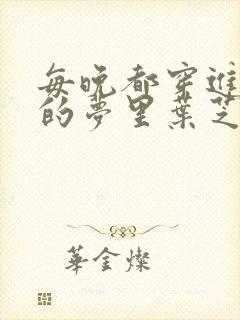 每晚都穿進
的夢里葉芝
華金燦